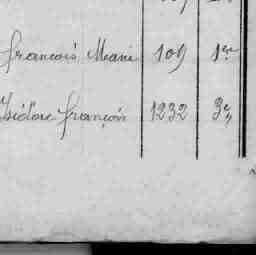 françois Marie 109 1er
Isidore françois 1232 3e